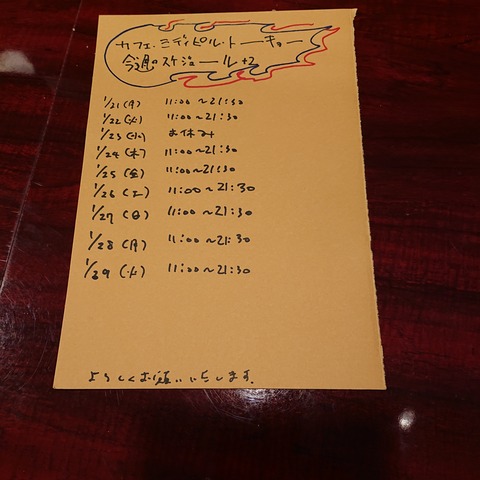 カフェ・ミディピル・トーキョー
今週のスケジュール+2
1/21(月) 11:00~21:30
1/22(火) 11:00~21:30
1/23(水) お休み
1/24(木) 11:00~21:30
1/25(金) 11:00~21:30
1/26(土) 11:00~21:30
1/27(日) 11:00~21:30
1/28(月) 11:00~21:30
1/29(火) 11:00~21:30
よろしくお願いいたします。